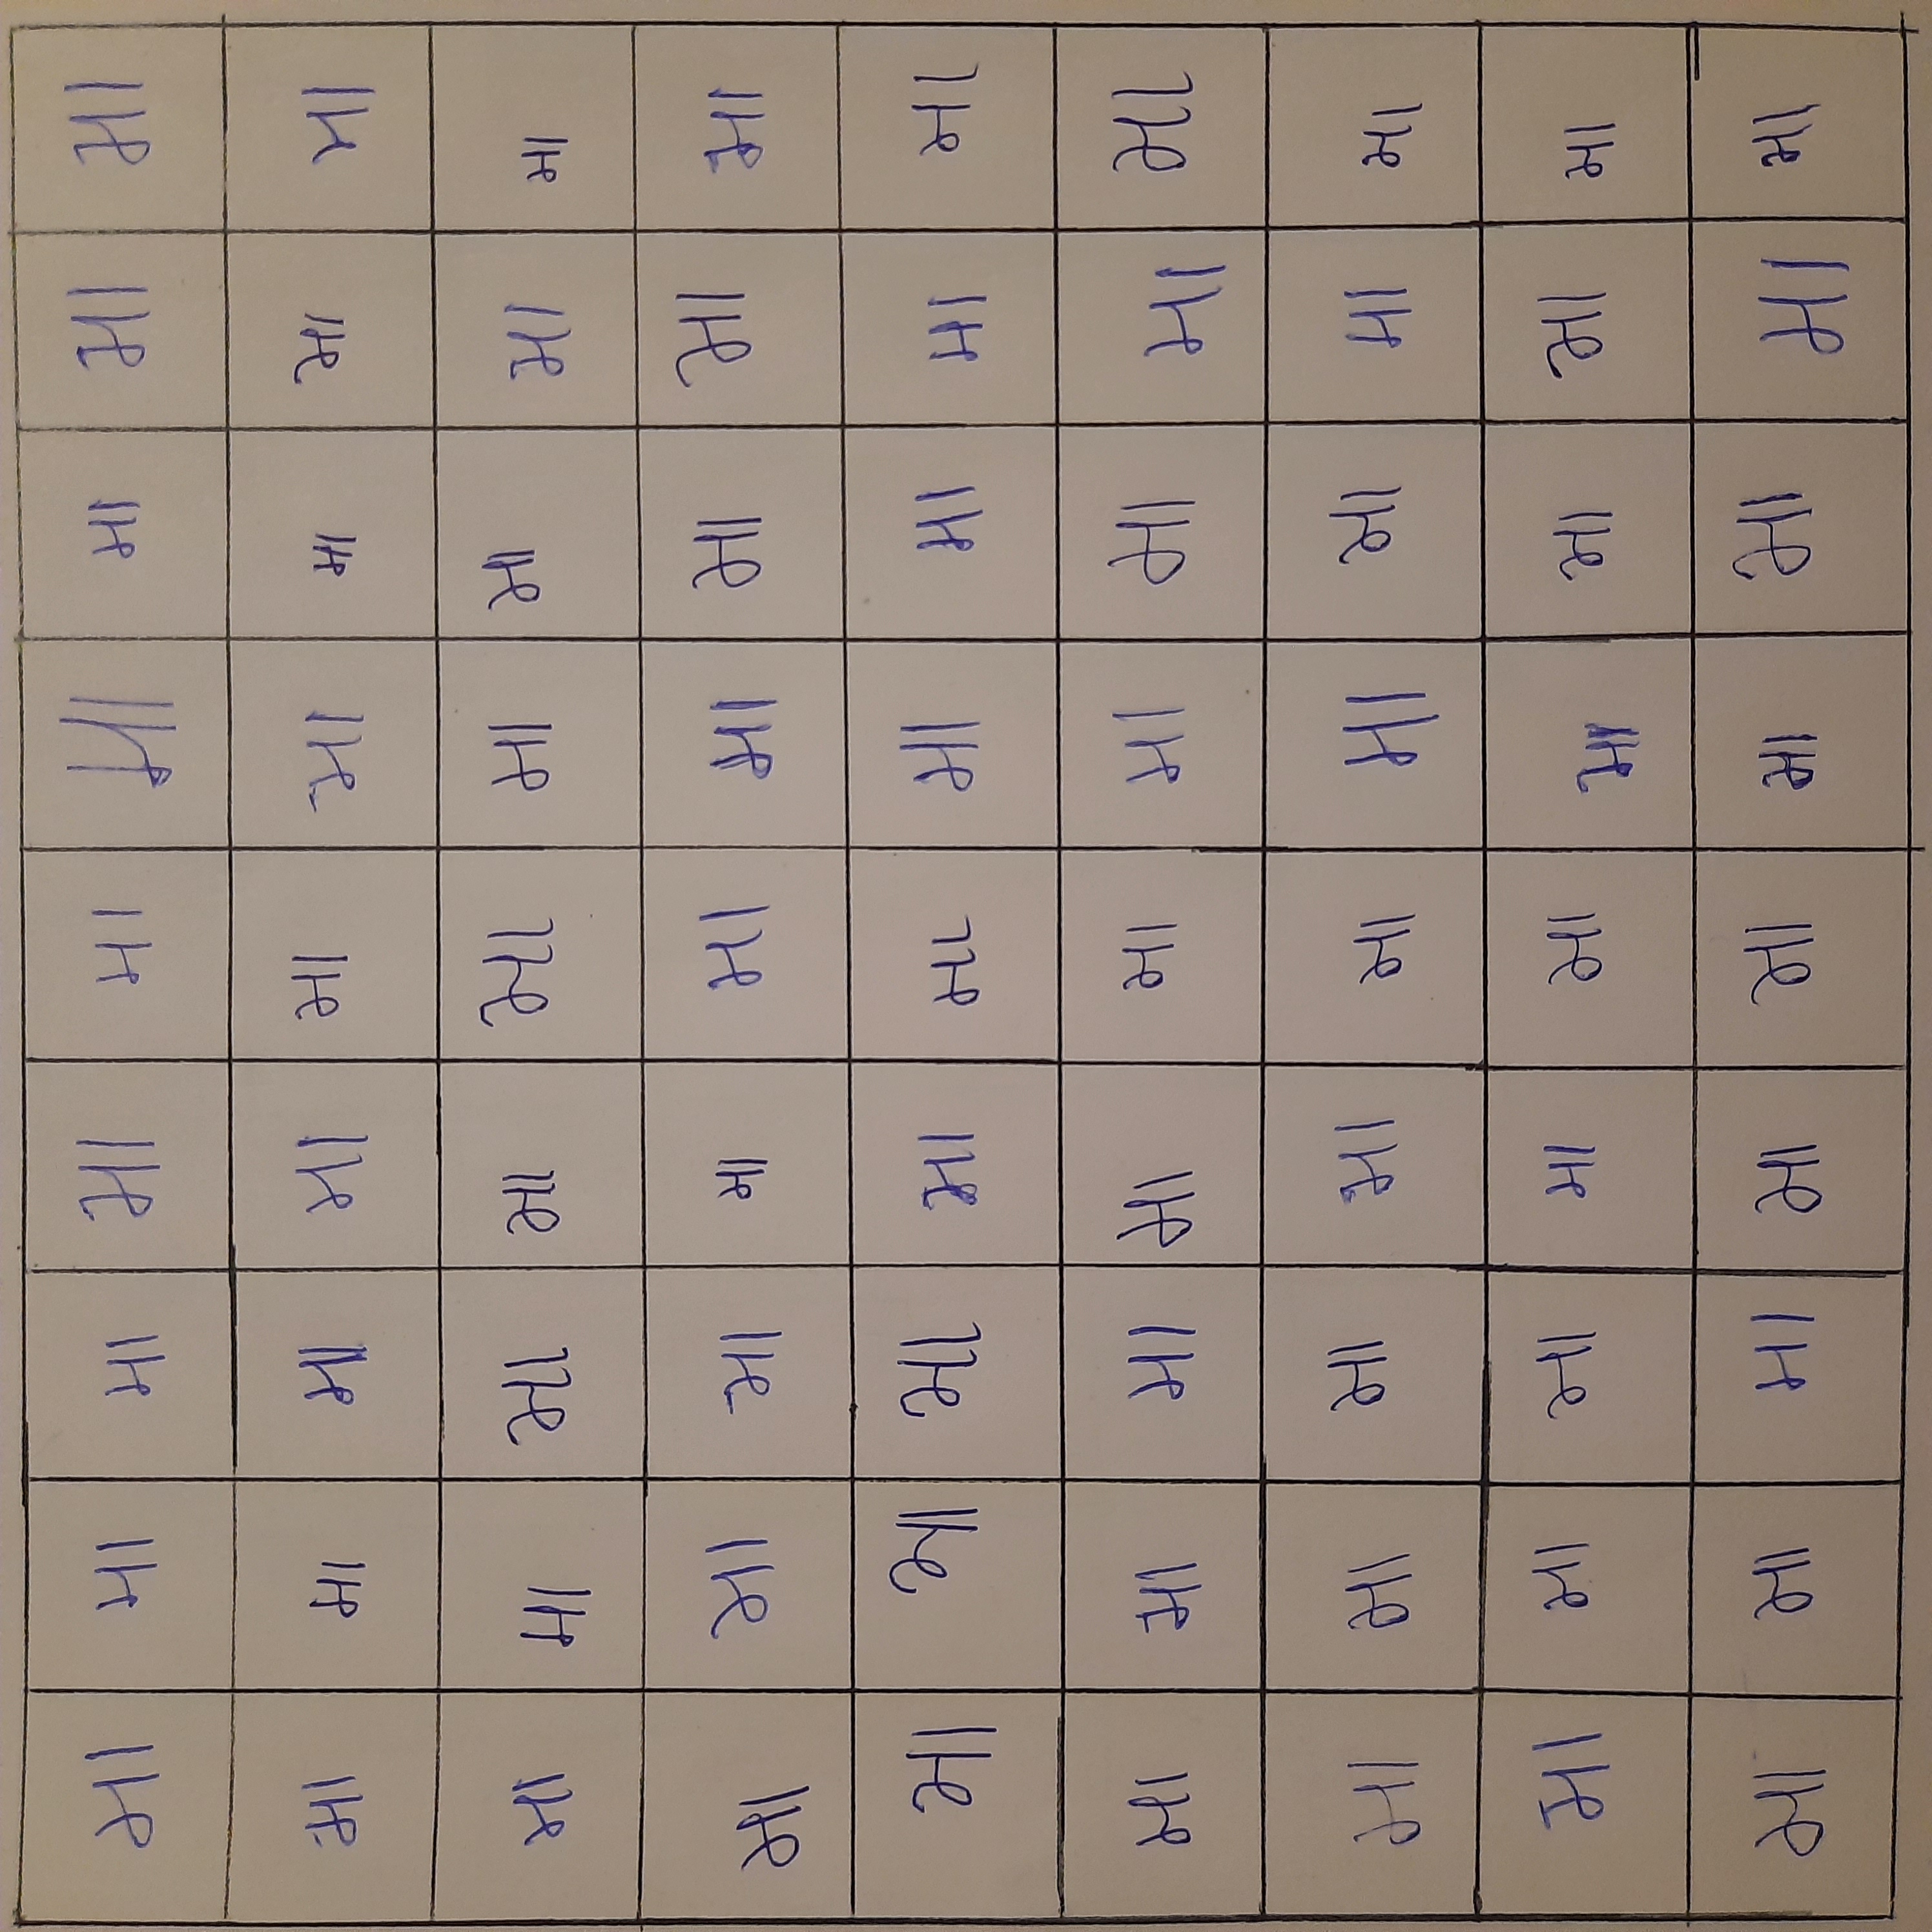 મા મા મા મા મા મા મા મા મા
મા મા મા મા મા મા મા મા મા
મા મા મા મા મા મા મા મા મા
મા મા મા મા મા મા મા મા મા
મા મા મા મા મા મા મા મા મા
મા મા મા મા મા મા મા મા મા
મા મા મા મા મા મા મા મા મા
મા મા મા મા મા મા મા મા મા
મા મા મા મા મા મા મા મા મા